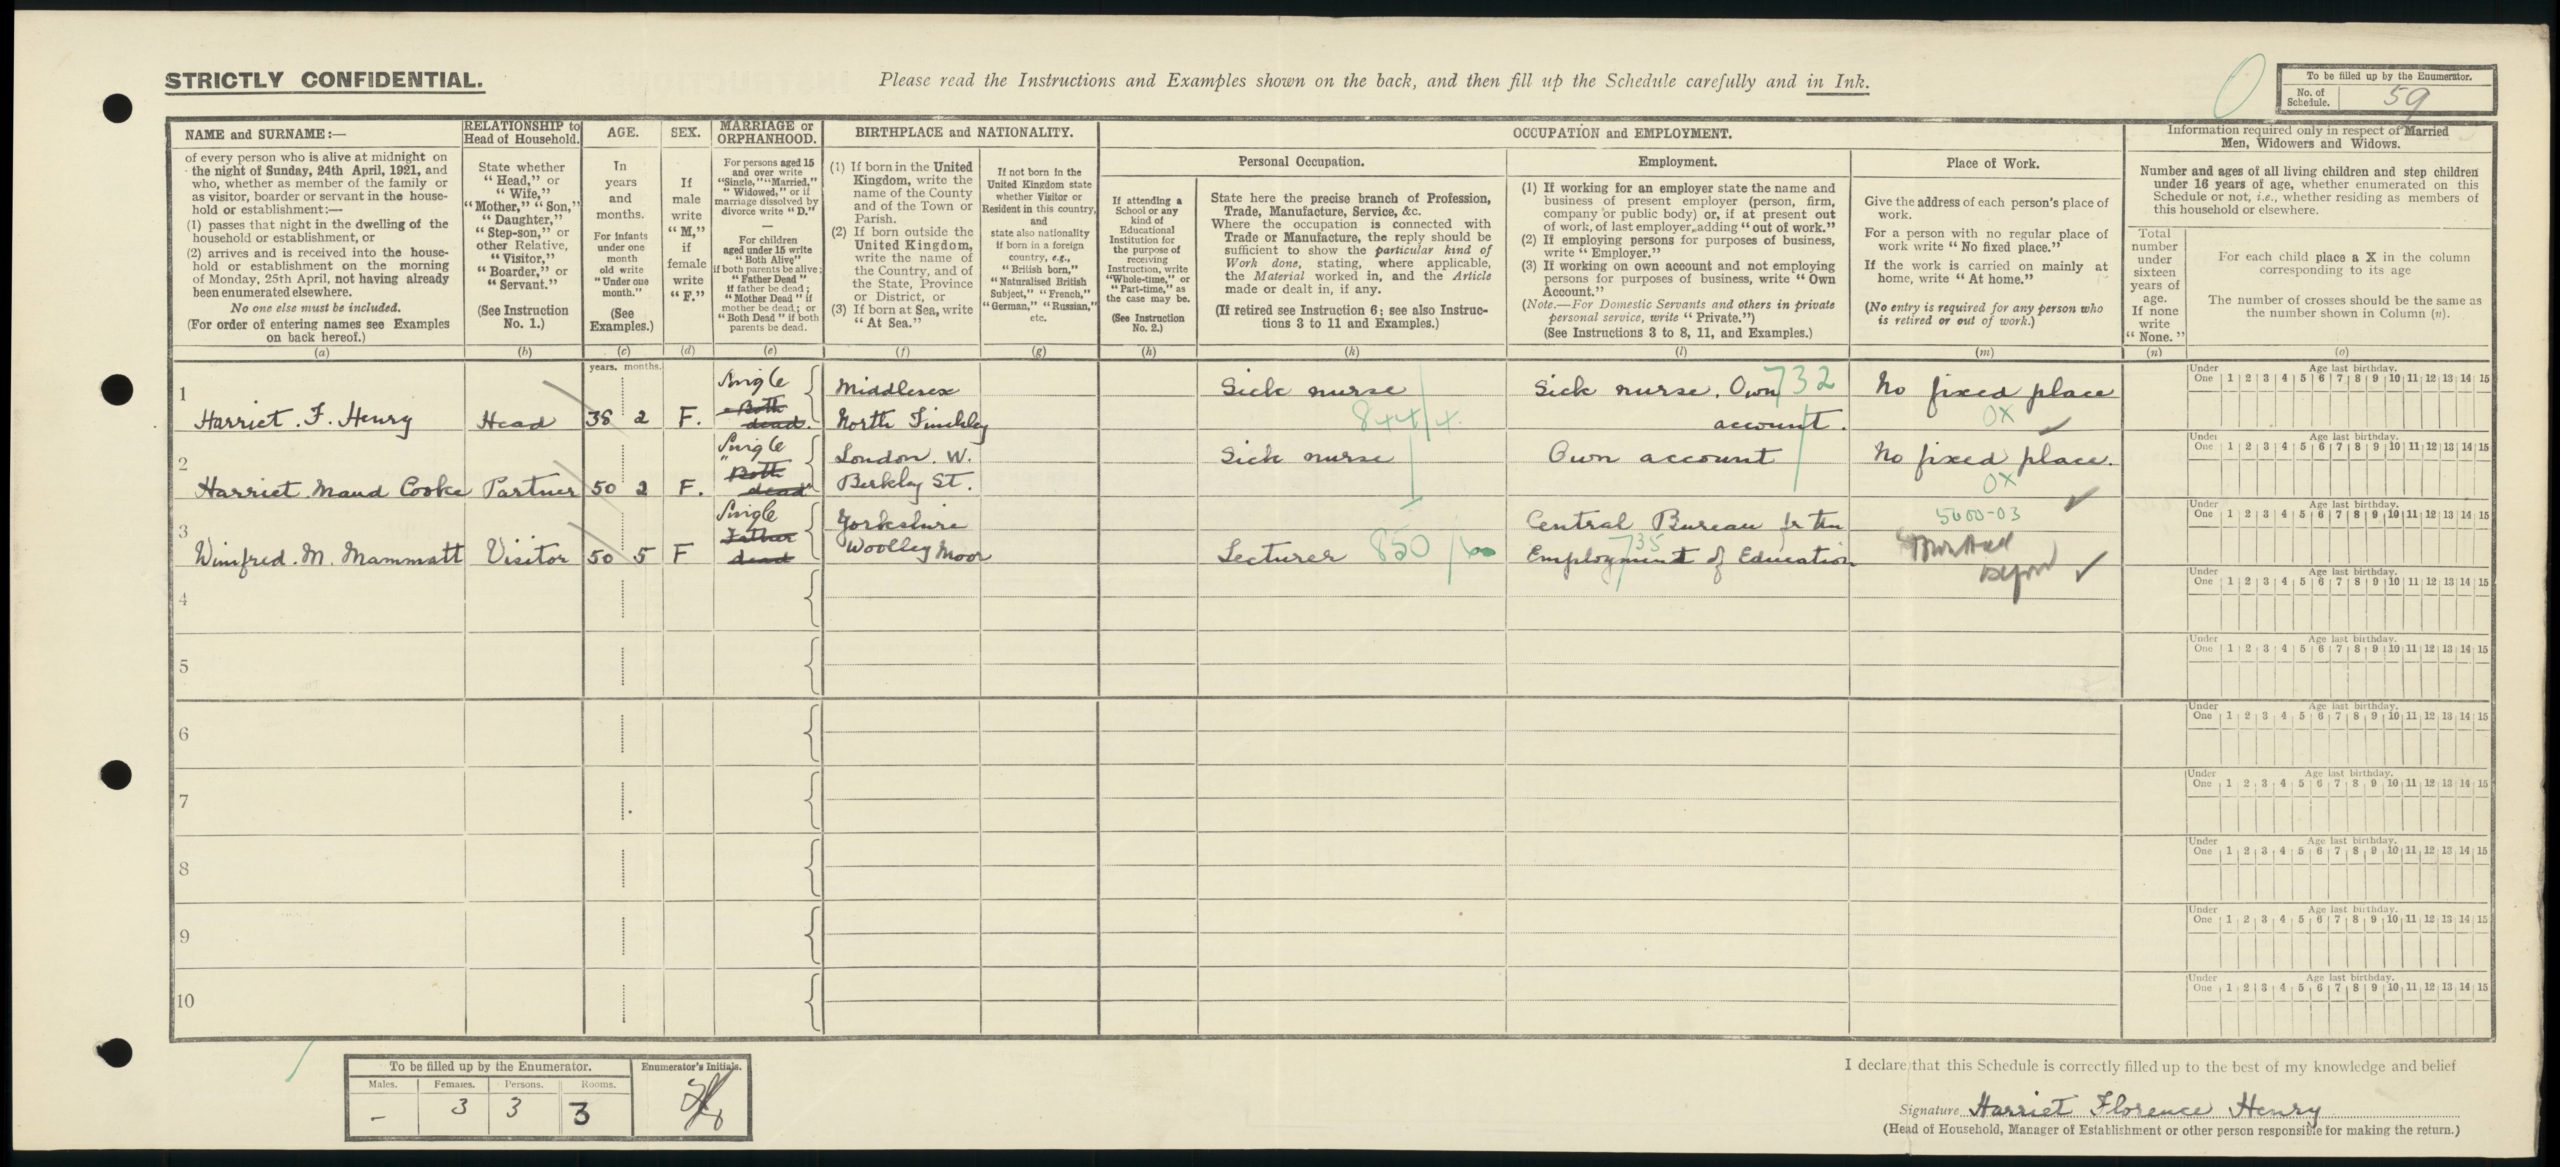 STRICTLY CONFIDENTIAL.
Please read the Instructions and Examples shown on the back, and then fill up the Schedule carefully and in Ink.
To be filled up by the Enumerator.
No. of Schedule. 59
NAME and SURNAME:—
of every person who is alive at midnight on
the night of Sunday, 24th April, 1921, and
who, whether as member of the family or
as visitor, boarder or servant in the house-
hold or establishment:—
(1) passes that night in the dwelling of the
household or establishment, or
(2) arrives and is received into the house-
hold or establishment on the morning
of Monday, 25th April, not having already
been enumerated elsewhere.
No one else must be included.
(For order of entering names see Examples
on back hereof.)
(a)
RELATIONSHIP to
Head of Household.
State whether
"Head," or
"Wife,"
"Mother," "Son,"
"Daughter,"
"Step-son," or
other Relative,
"Visitor,"
"Boarder," or
"Servant."
(See Instruction
No. 1.)
(b)
AGE.
In
years
and
months.
For infants
under one
month
old write
"Under one
month."
(See
Examples.)
(c)
years. months.
SEX.
If
male
write
"M,"
if
female
write
"F."
(d)
MARRIAGE or
ORPHANHOOD.
For persons aged 15
and over write
"Single," "Married,"
"Widowed," or if
marriage dissolved by
divorce write "D."
—
For children
aged under 15 write
"Both Alive"
if both parents be alive;
"Father Dead"
if father be dead;
"Mother Dead" if
mother be dead; or
"Both Dead" if both
parents be dead.
(e)
BIRTHPLACE and NATIONALITY.
(1) If born in the United
Kingdom, write the
name of the County
and of the Town or
Parish.
(2) If born outside the
United Kingdom,
write the name of
the Country, and of
the State, Province
or District, or
(3) If born at Sea, write
"At Sea."
(f)
If not born in the
United Kingdom state
whether Visitor or
Resident in this country,
and
state also nationality
if born in a foreign
country, e.g.,
"British born,"
"Naturalised British
Subject," "French,"
"German," "Russian,"
etc.
(g)
OCCUPATION and EMPLOYMENT.
If attending a
School or any
kind of
Educational
Institution for
the purpose of
receiving
Instruction, write
"Whole-time," or
"Part-time," as
the case may be.
(See Instruction
No. 2.)
(h)
Personal Occupation.
State here the precise branch of Profession,
Trade, Manufacture, Service, &c.
Where the occupation is connected with
Trade or Manufacture, the reply should be
sufficient to show the particular kind of
Work done, stating, where applicable,
the Material worked in, and the Article
made or dealt in, if any.
(If retired see Instruction 6; see also Instruc-
tions 3 to 11 and Examples.)
(k)
Employment.
(1) If working for an employer state the name and
business of present employer (person, firm,
company or public body) or, if at present out
of work, of last employer, adding "out of work."
(2) If employing persons for purposes of business,
write "Employer."
(3) If working on own account and not employing
persons for purposes of business, write "Own
Account."
(Note.—For Domestic Servants and others in private
personal service, write "Private.")
(See Instructions 3 to 8, 11, and Examples.)
(l)
Place of Work.
Give the address of each person's place of
work.
For a person with no regular place of
work write "No fixed place."
If the work is carried on mainly at
home, write "At home."
(No entry is required for any person who
is retired or out of work.)
(m)
Information required only in respect of Married
Men, Widowers and Widows.
Number and ages of all living children and step children
under 16 years of age, whether enumerated on this
Schedule or not, i.e., whether residing as members of
this household or elsewhere.
Total
number
under
sixteen
years of
age.
If none
write
"None."
(n)
For each child place a X in the column
corresponding to its age
The number of crosses should be the same as
the number shown in Column (n).
(o)
1 Harriet. F. Henry Head 38 2 F. Single Both dead. Middlesex North Finchley Sick nurse 844/4. Sick nurse. Own account. 732 No fixed place OX
Under One Age last birthday. 1 2 3 4 5 6 7 8 9 10 11 12 13 14 15
2 Harriet Maud Cooke Partner 50 2 F. Single Both dead London. W. Berkley St. Sick nurse Own account No fixed place. OX
Under One Age last birthday. 1 2 3 4 5 6 7 8 9 10 11 12 13 14 15
3 Winifred. M. Mammatt Visitor 50 5 F Single Father dead Yorkshire Woolley Moor Lecturer 850 Central Bureau for the Employment of Education 735 5600-03
Under One Age last birthday. 1 2 3 4 5 6 7 8 9 10 11 12 13 14 15
4
Under One Age last birthday. 1 2 3 4 5 6 7 8 9 10 11 12 13 14 15
5
Under One Age last birthday. 1 2 3 4 5 6 7 8 9 10 11 12 13 14 15
6
Under One Age last birthday. 1 2 3 4 5 6 7 8 9 10 11 12 13 14 15
7
Under One Age last birthday. 1 2 3 4 5 6 7 8 9 10 11 12 13 14 15
8
Under One Age last birthday. 1 2 3 4 5 6 7 8 9 10 11 12 13 14 15
9
Under One Age last birthday. 1 2 3 4 5 6 7 8 9 10 11 12 13 14 15
10
Under One Age last birthday. 1 2 3 4 5 6 7 8 9 10 11 12 13 14 15
To be filled up by the Enumerator.
Males. Females. Persons. Rooms.
– 3 3 3
Enumerator's Initials.
I declare that this Schedule is correctly filled up to the best of my knowledge and belief
Signature Harriet Florence Henry
(Head of Household, Manager of Establishment or other person responsible for making the return.)